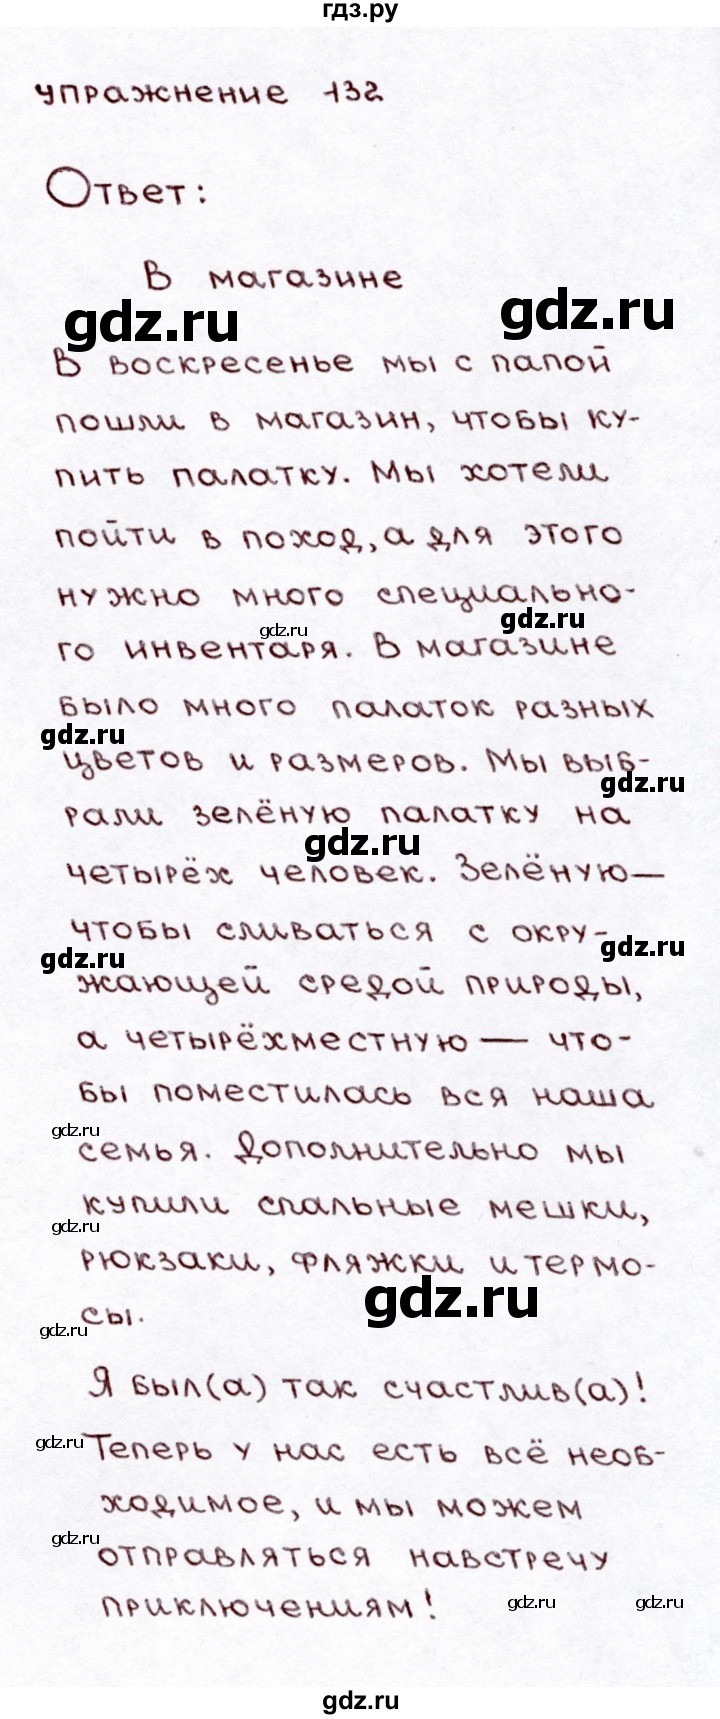 гдз.ру
упражнение 132
Ответ:
В магазине
gdz.ru
gdz.ru
В воскресенье мы с папой
пошли в магазин, чтобы ку-
пить палатку. Мы хотели
пойти в поход, а для этого
нужно много специально-
gdz.ru
gdz.ru
го инвентаря. В магазине
было много палаток разных
gdz.ru
цветов и размеров. Мы выб-
gdz.ru
рали зелёную палатку на
gdz.ru
четырёх человек. Зелёную—
чтобы сливаться с окру-
gdz.ru
gdz.ru
жающей средой природы,
а четырёхместную — что-
бы поместилась вся наша
gdz.ru
семья. Дополнительно мы
купили спальные мешки,
gdz.ru
рюкзаки, фляжки и термо-
gdz.ru
сы.
gdz.ru
Я был(а) так счастлив(а)!
gdz.ru
Теперь у нас есть всё необ-
ходимое, и мы можем
gdz.ru
отправляться навстречу
приключениям!
gdz.ru
gdz.ru
gdz.ru